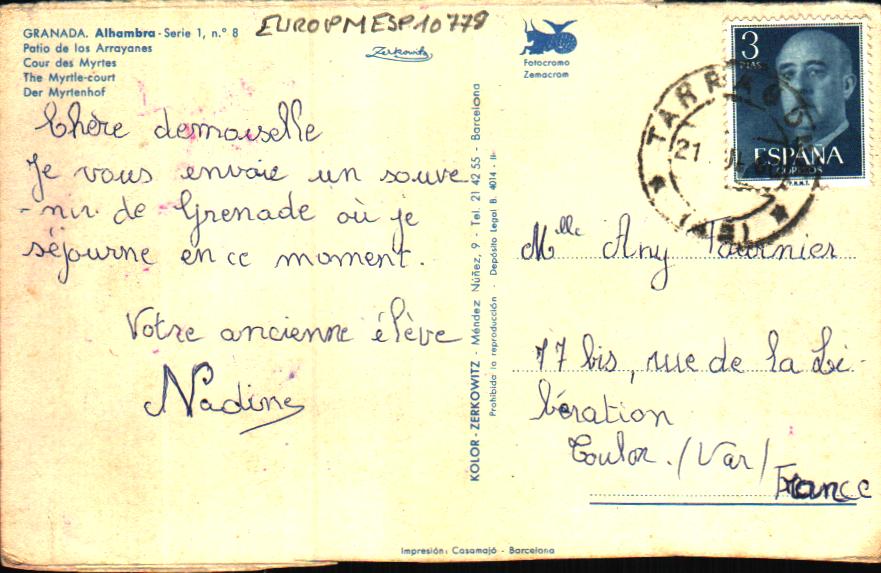 GRANADA. Alhambra - Serie 1, n.º 8
Patio de los Arrayanes
Cour des Myrtes
The Myrtle-court
Der Myrtenhof
EUROPMESP10778
Zerkowitz
Fotocromo
Zemacrom
3
PTAS
ESPAÑA
CORREOS
TARRAGONA
21
Chère demoiselle
Je vous envoie un souve
-nir de Grenade où je
séjourne en ce moment.
Votre ancienne élève
Nadine
KOLOR-ZERKOWITZ - Méndez Núñez, 9 - Tel. 21 42 55 - Barcelona
Prohibida la reproducción - Depósito Legal B. 4014 - II
Mlle Any Fournier
77 bis, rue de la Li-
bération
Toulon. /Var/
France
Impresión: Casamajó - Barcelona